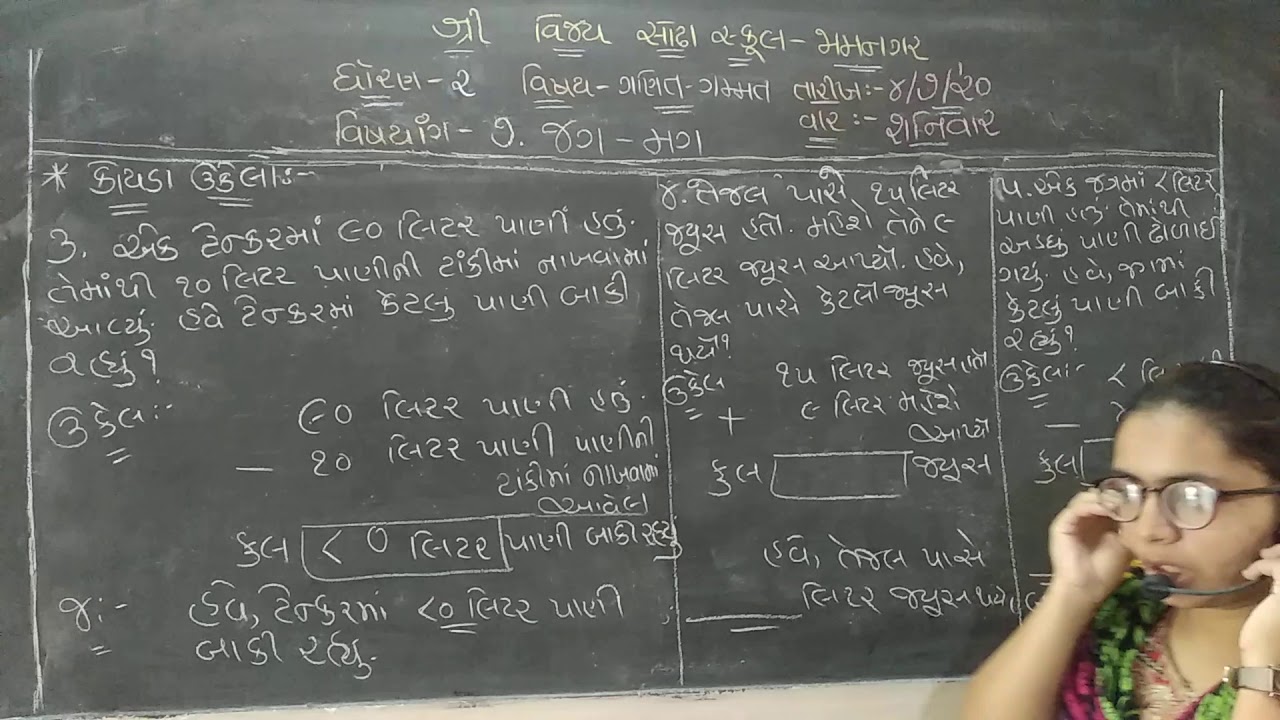 શ્રી વિજય સાંઢા સ્કૂલ - ભામનગર
ધોરણ - ૨ વિષય - ગણિત - ગમ્મત તારીખ :- ૪/૭/૨૦
વિષયાંગ - ૭. જગ - મગ વાર :- શનિવાર
* કોયડા ઉકેલો :-
૩. એક ટેન્કરમાં ૯૦ લિટર પાણી હતું.
તેમાંથી ૧૦ લિટર પાણીની ટાંકીમાં નાખવામાં
આવ્યું. હવે ટેન્કરમાં કેટલું પાણી બાકી
રહ્યું?
ઉકેલ :- ૯૦ લિટર પાણી હતું.
— ૧૦ લિટર પાણી પાણીની
ટાંકીમાં નાખવામાં
આવેલ
કુલ ૮૦ લિટર પાણી બાકી રહ્યું
જ :- હવે, ટેન્કરમાં ૮૦ લિટર પાણી
બાકી રહ્યું.
૪. તેજલ પાસે ૧૫ લિટર
જ્યુસ હતો. મહેશે તેને ૯
લિટર જ્યુસ આપ્યો. હવે,
તેજલ પાસે કેટલો જ્યુસ
થયો?
ઉકેલ ૧૫ લિટર જ્યુસ હતો
+ ૯ લિટર મહેશે
આપ્યો
કુલ જ્યુસ
હવે, તેજલ પાસે
લિટર જ્યુસ થયો.
૫. એક જગમાં ૮ લિટર
પાણી હતું. તેમાંથી
અડધું પાણી ઢોળાઈ
ગયું. હવે, જગમાં
કેટલું પાણી બાકી
રહ્યું?
ઉકેલ :- ૮ લિ
—
કુલ